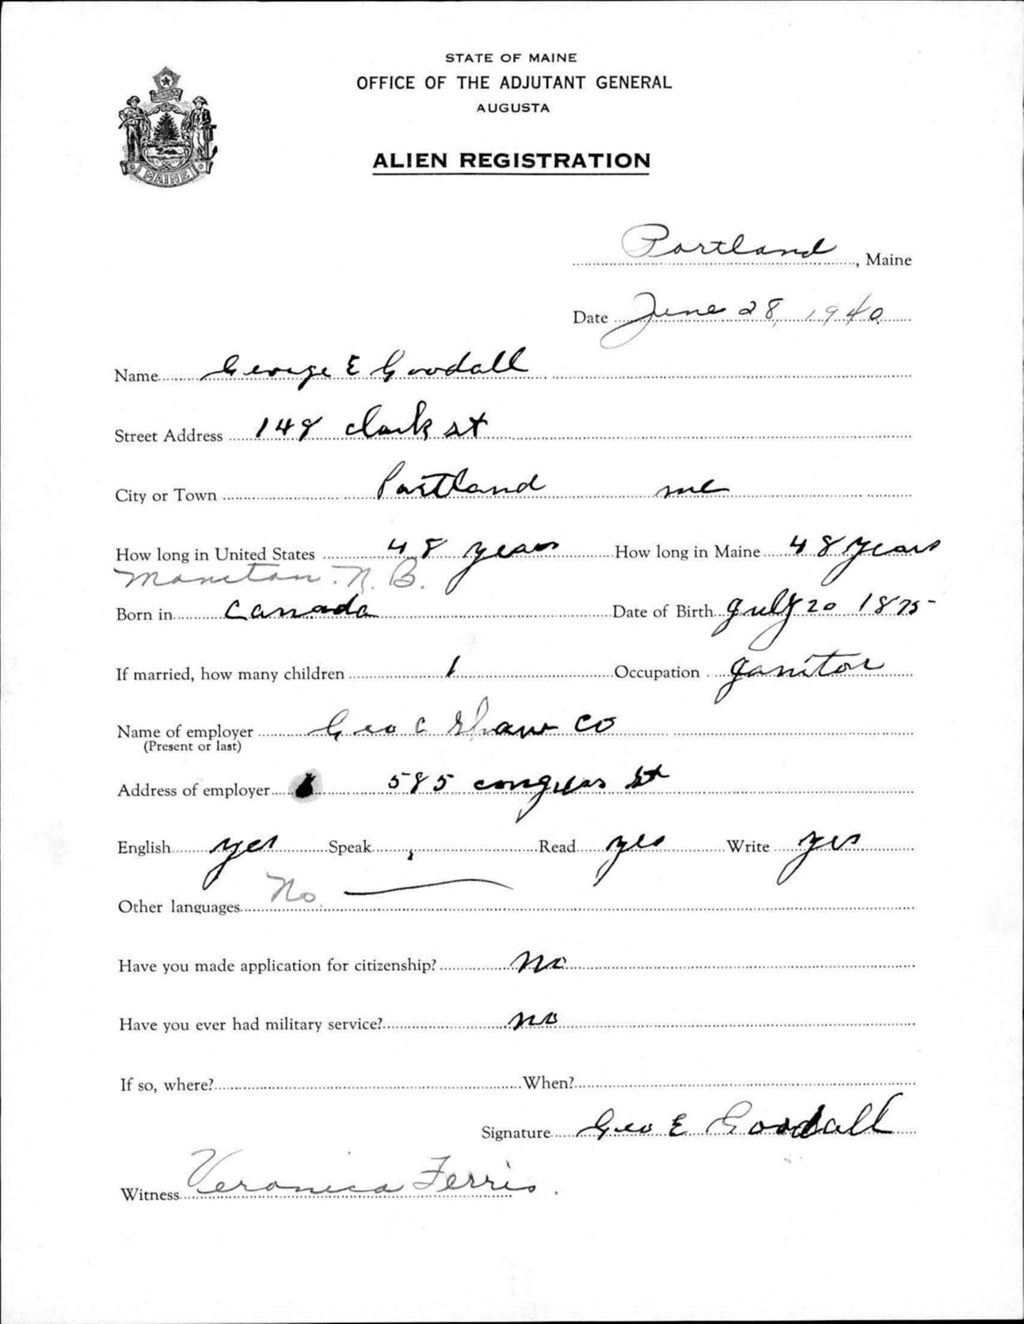 STATE OF MAINE
OFFICE OF THE ADJUTANT GENERAL
AUGUSTA
ALIEN REGISTRATION
MAINE
Portland, Maine
Date June 28, 1940
Name George E Goodall
Street Address 148 Clark st
City or Town Portland me
How long in United States 48 years How long in Maine 48 years
N. B.
Born in Canada Date of Birth July 20 1875
If married, how many children 1 Occupation Janitor
Name of employer Geo C Shaw Co
(Present or last)
Address of employer 585 congress St
English yes Speak Read yes Write yes
Other languages No
Have you made application for citizenship? No
Have you ever had military service? no
If so, where? When?
Signature Geo E Goodall
Witness Veronica Ferris.